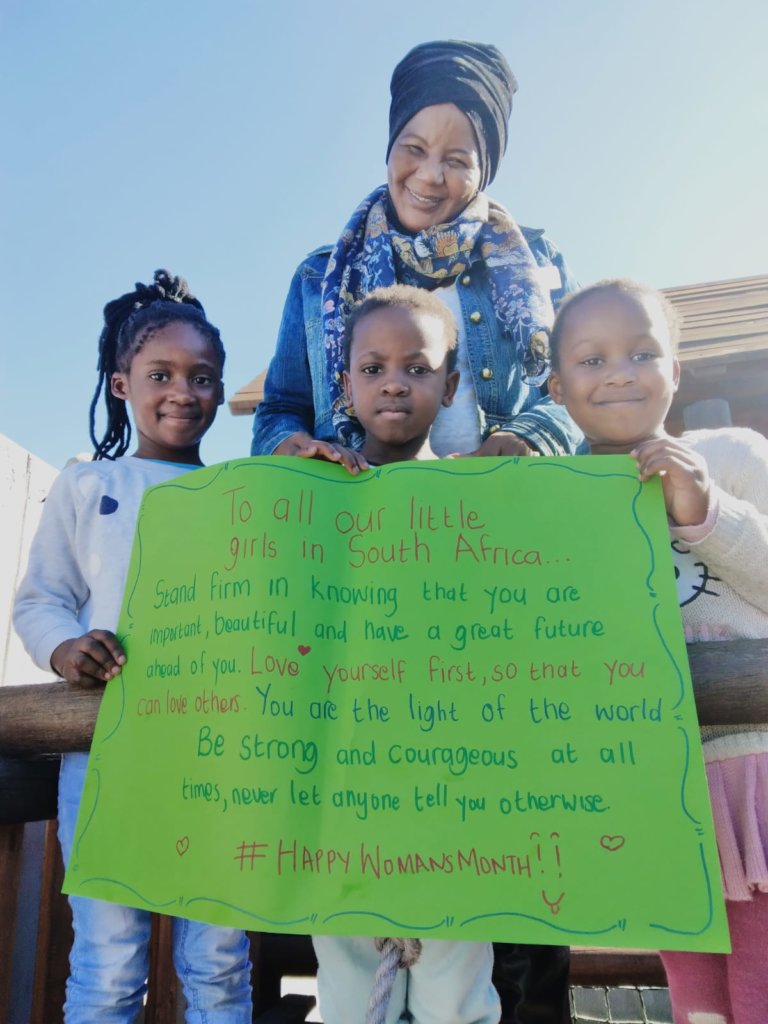 To all our little
girls in South Africa...
Stand firm in knowing that you are
important, beautiful and have a great future
ahead of you. Love yourself first, so that you
can love others. You are the light of the world
Be strong and courageous at all
times, never let anyone tell you otherwise.
# HAPPY WOMANS MONTH!!